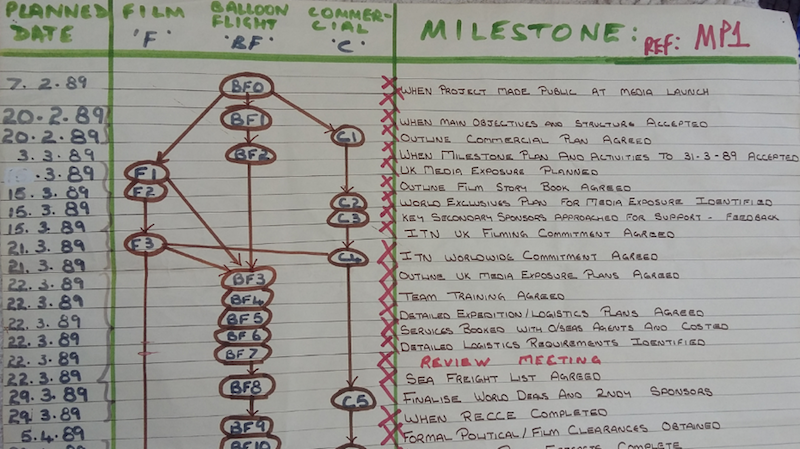 PLANNED DATE FILM 'F' BALLOON FLIGHT 'BF' COMMER-CIAL 'C' MILESTONE: REF: MP1
7. 2. 89 BF0 WHEN PROJECT MADE PUBLIC AT MEDIA LAUNCH
20. 2. 89 BF1 WHEN MAIN OBJECTIVES AND STRUCTURE ACCEPTED
20. 2. 89 C1 OUTLINE COMMERCIAL PLAN AGREED
3. 3. 89 BF2 WHEN MILESTONE PLAN AND ACTIVITIES TO 31-3-89 ACCEPTED
. 3. 89 F1 UK MEDIA EXPOSURE PLANNED
15. 3. 89 F2 OUTLINE FILM STORY BOOK AGREED
15. 3. 89 C2 WORLD EXCLUSIVES PLAN FOR MEDIA EXPOSURE IDENTIFIED
15. 3. 89 C3 KEY SECONDARY SPONSORS APPROACHED FOR SUPPORT - FEEDBACK
21. 3. 89 F3 ITN UK FILMING COMMITMENT AGREED
21. 3. 89 C4 ITN WORLDWIDE COMMITMENT AGREED
22. 3. 89 BF3 OUTLINE UK MEDIA EXPOSURE PLANS AGREED
22. 3. 89 BF4 TEAM TRAINING AGREED
22. 3. 89 BF5 DETAILED EXPEDITION/LOGISTICS PLANS AGREED
22. 3. 89 BF6 SERVICES BOOKED WITH O/SEAS AGENTS AND COSTED
22. 3. 89 BF7 DETAILED LOGISTICS REQUIREMENTS IDENTIFIED
REVIEW MEETING
22. 3. 89 BF8 SEA FREIGHT LIST AGREED
29. 3. 89 C5 FINALISE WORLD DEALS AND 2NDY SPONSORS
29. 3. 89 BF9 WHEN RECCE COMPLETED
5. 4. 89 BF10 FORMAL POLITICAL/FILM CLEARANCES OBTAINED
COMPLETE